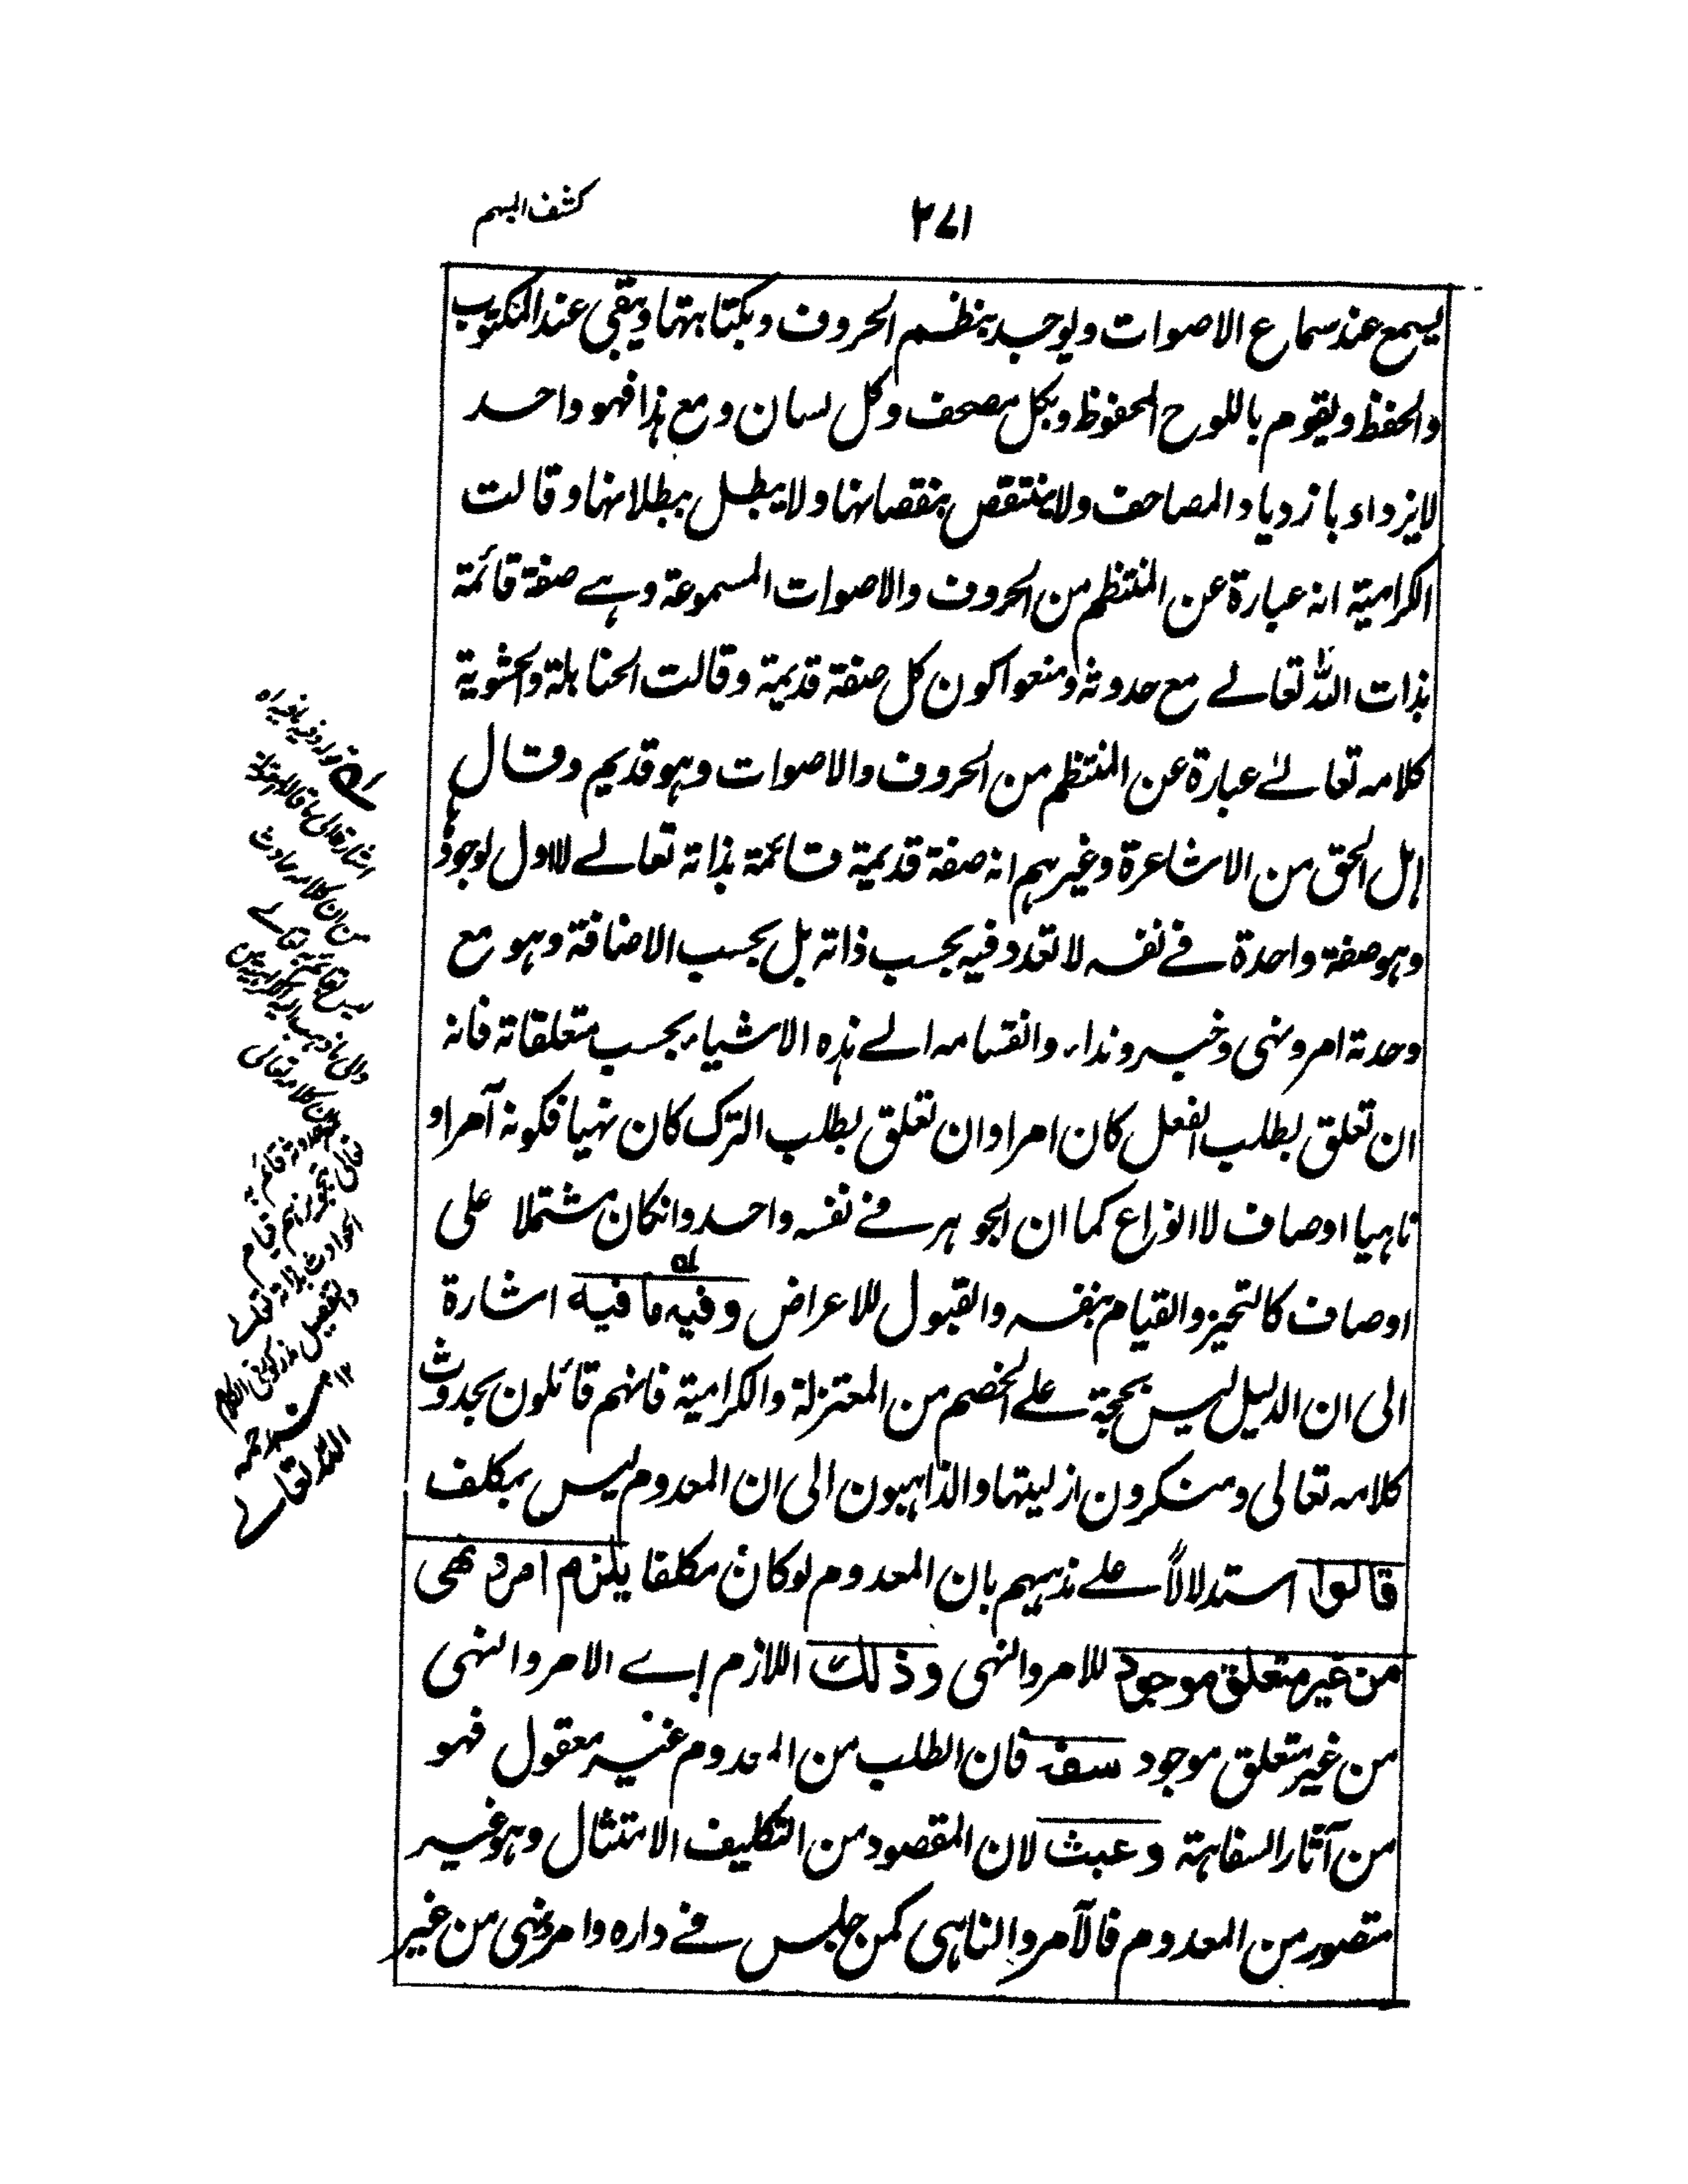 كشف المبهم
٢٧١
يسمع عند سماع الاصوات ويوجد بنظم الحروف وبكتابتها ويبقى عند المكتوب
والحفظ ويقوم باللوح المحفوظ وبكل مصحف وكل لسان ومع هذا فهو واحد
لايزداد بازدياد المصاحف ولاينتقص بنقصانها ولا يبطل ببطلانها وقالت
الكرامية انه عبارة عن المنتظم من الحروف والاصوات المسموعة وهے صفة قائمة
بذات اللّٰه تعالے مع حدوثه ومنعوا كون كل صفة قديمة وقالت الحنابلة والحشوية
كلامه تعالےٰ عبارة عن المنتظم من الحروف والاصوات وهو قديم وقال
اهل الحق من الاشاعرة وغيرهم انه صفة قديمة قائمة بذاته تعالے لااول لوجودها
وهو صفة واحدة فے نفسه لا تعدد فيه بحسب ذاته بل بحسب الاضافة وهو مع
وحدته امر ونهى وخبر ونداء وانقسامه الے هذه الاشياء بحسب متعلقاته فانه
ان تعلق بطلب الفعل كان امرا وان تعلق بطلب الترك كان نهيا فكونه آمرا و
ناهيا اوصاف لا انواع كما ان الجوهر فے نفسه واحد وانكان مشتملا على
اوصاف كالتحيز والقيام بنفسه والقبول للاعراض وفيه ما فيه اشارة
الى ان الدليل ليس بحجة علے الخصم من المعتزلة والكرامية فانهم قائلون بحدوث
كلامه تعالى ومنكرون ازليتها والذاهبون الى ان المعدوم ليس بمكلف
قالوا استدلالاً علے مذهبهم بان المعدوم لو كان مكلفا يلزم امر و نهى
من غير متعلق موجود للامر والنهى وذلك اللازم اے الامر والنهى
من غير متعلق موجود سفه فان الطلب من المعدوم غير معقول فهو
من آثار السفاهة وعبث لان المقصود من التكليف الامتثال وهو غير
متصور من المعدوم فالآمر والناهى كمن جلس فے داره وامر ونهى من غير
له قوله وفيه ما فيه اه
اشارة الى ما قاله المعتزلة
من ان كلامه حادث
ليس بقائم به تعالے
والى ما ذهب اليه الكرامية من
ان كلامه تعالى
مع حدوثه قائم به
لتجويزهم قيام
الحوادث بذاته تعالى
والتفصيل مذكور فى الكلام
١٢ منه رحمه
اللّٰه تعالے